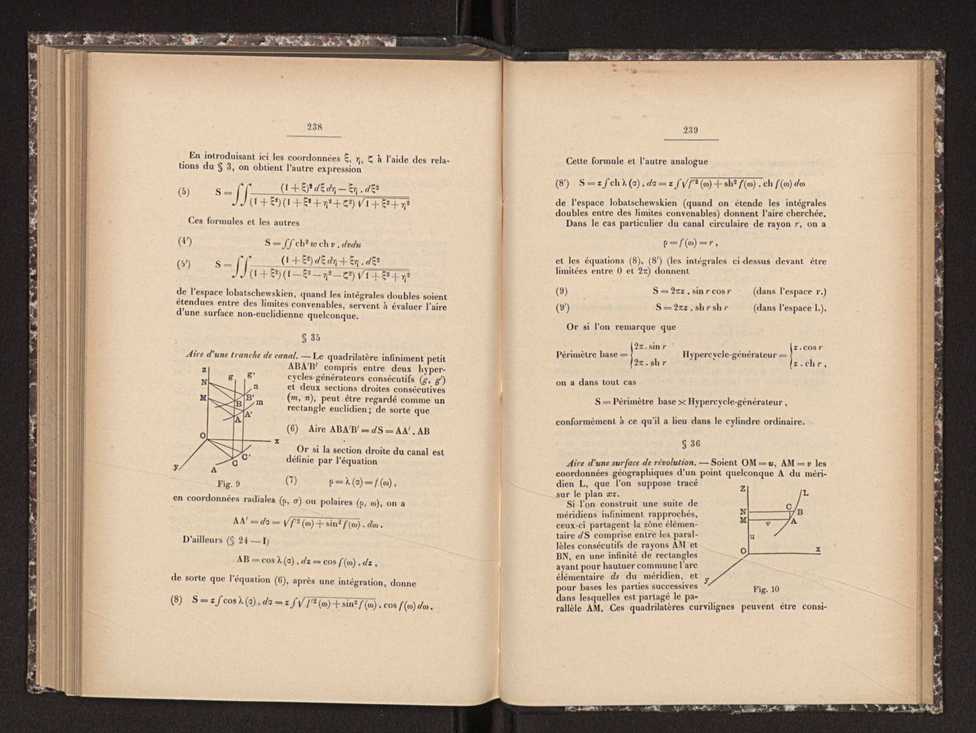 238
En introduisant ici les coordonnées ξ, η, ζ à l'aide des rela-
tions du § 3, on obtient l'autre expression
(5) S = ∫∫ (1 + ξ²) dξ dη − ξη . dξ² / (1 + ξ²) (1 + ξ² + η² + ζ²) √1 + ξ² + η²
Ces formules et les autres
(4') S = ∫∫ ch² w ch v . dvdu
(5') S = ∫∫ (1 + ξ²) dξ dη + ξη . dξ² / (1 + ξ²) (1 − ξ² − η² − ζ²) √1 + ξ² + η²
de l'espace lobatschewskien, quand les intégrales doubles soient
étendues entre des limites convenables, servent à évaluer l'aire
d'une surface non-euclidienne quelconque.
§ 35
Aire d'une tranche de canal. — Le quadrilatère infiniment petit
ABA'B' compris entre deux hyper-
cycles-générateurs consécutifs (g, g')
et deux sections droites consécutives
(m, n), peut être regardé comme un
rectangle euclidien; de sorte que
(6) Aire ABA'B' = dS = AA' . AB
Or si la section droite du canal est
définie par l'équation
z N M O y x A C C' g g' n B B' m A A'
Fig. 9
(7) ρ = λ (σ) = f (ω) ,
en coordonnées radiales (ρ, σ) ou polaires (ρ, ω), on a
AA' = dσ = √f'² (ω) + sin² f (ω) . dω .
D'ailleurs (§ 24 — I)
AB = cos λ (σ) . dz = cos f (ω) . dz ,
de sorte que l'équation (6), après une intégration, donne
(8) S = z ∫ cos λ (σ) . dσ = z ∫ √f'² (ω) + sin² f (ω) . cos f (ω) dω .
239
Cette formule et l'autre analogue
(8') S = z ∫ ch λ (σ) . dσ = z ∫ √f'² (ω) + sh² f (ω) . ch f (ω) dω
de l'espace lobatschewskien (quand on étende les intégrales
doubles entre des limites convenables) donnent l'aire cherchée.
Dans le cas particulier du canal circulaire de rayon r, on a
ρ = f (ω) = r ,
et les équations (8), (8') (les intégrales ci dessus devant être
limitées entre 0 et 2π) donnent
(9) S = 2πz . sin r cos r (dans l'espace r.)
(9') S = 2πz . sh r sh r (dans l'espace l.).
Or si l'on remarque que
Périmètre base = { 2π . sin r Hypercycle-générateur = { z . cos r
2π . sh r z . ch r ,
on a dans tout cas
S = Périmètre base × Hypercycle-générateur ,
conformèment à ce qu'il a lieu dans le cylindre ordinaire.
§ 36
Aire d'une surface de révolution. — Soient OM = u, AM = v les
coordonnées géographiques d'un point quelconque A du méri-
dien L, que l'on suppose tracé
sur le plan xz.
Si l'on construit une suite de
méridiens infiniment rapprochés,
ceux-ci partagent la zône élémen-
taire dS comprise entre les paral-
lèles consécutifs de rayons AM et
BN, en une infinité de rectangles
ayant pour hautuer commune l'arc
élémentaire ds du méridien, et
pour bases les parties successives
dans lesquelles est partagé le pa-
Z L N C B M v A u O x y
Fig. 10
rallèle AM. Ces quadrilatères curvilignes peuvent être consi-